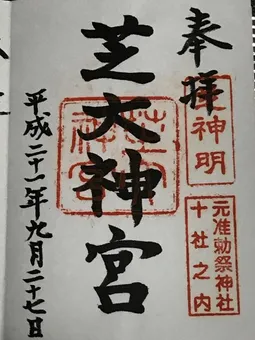 奉拝
芝大神宮
平成二十一年九月二十七日
神明
元准勅祭神社
十社之内
芝大
神宮